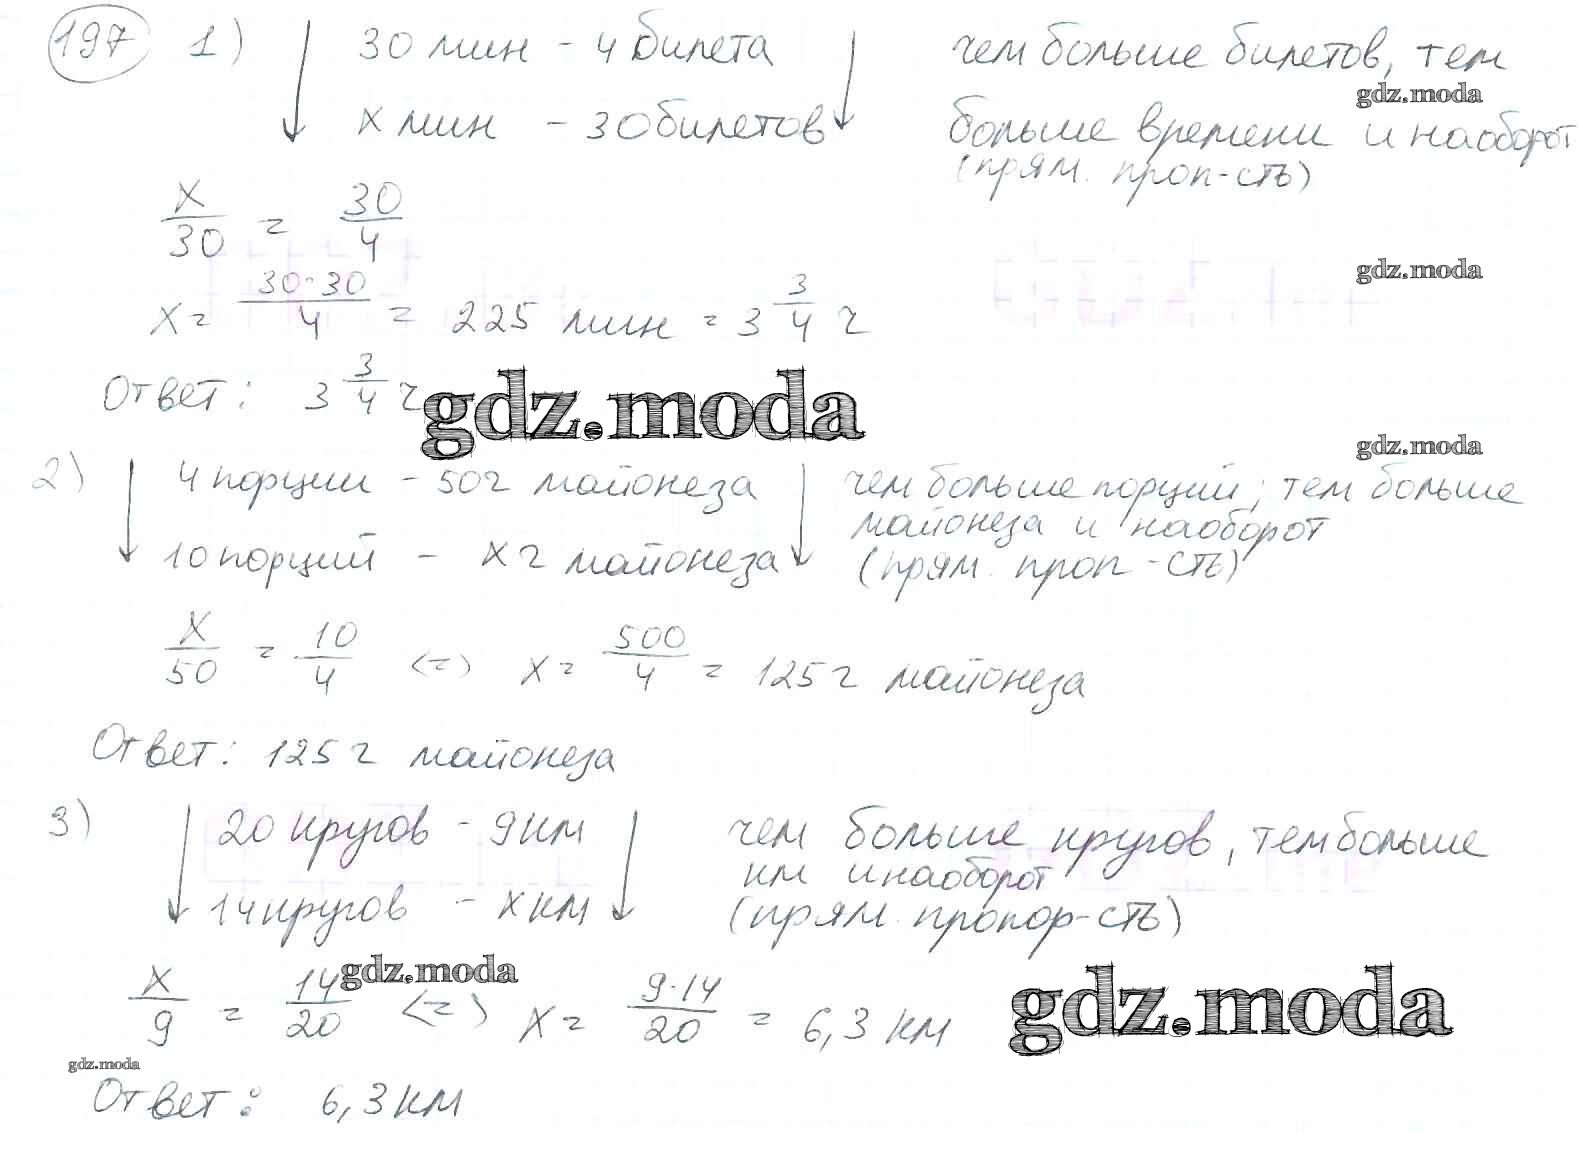 197 1) 30 мин - 4 билета чем больше билетов, тем
gdz.moda
x мин - 30 билетов больше времени и наоборот
(прям. проп-сть)
x/30 = 30/4
gdz.moda
x = 30·30/4 = 225 мин = 3 3/4 ч
Ответ: 3 3/4 ч
gdz.moda
gdz.moda
2) 4 порции - 50 г майонеза чем больше порций, тем больше
майонеза и наоборот
10 порций - x г майонеза (прям. проп-сть)
x/50 = 10/4 <=> x = 500/4 = 125 г майонеза
Ответ: 125 г майонеза
3) 20 кругов - 9 км чем больше кругов, тем больше
км и наоборот
14 кругов - x км (прям. пропор-сть)
gdz.moda
x/9 = 14/20 <=> x = 9·14/20 = 6,3 км
gdz.moda
gdz.moda
Ответ: 6,3 км